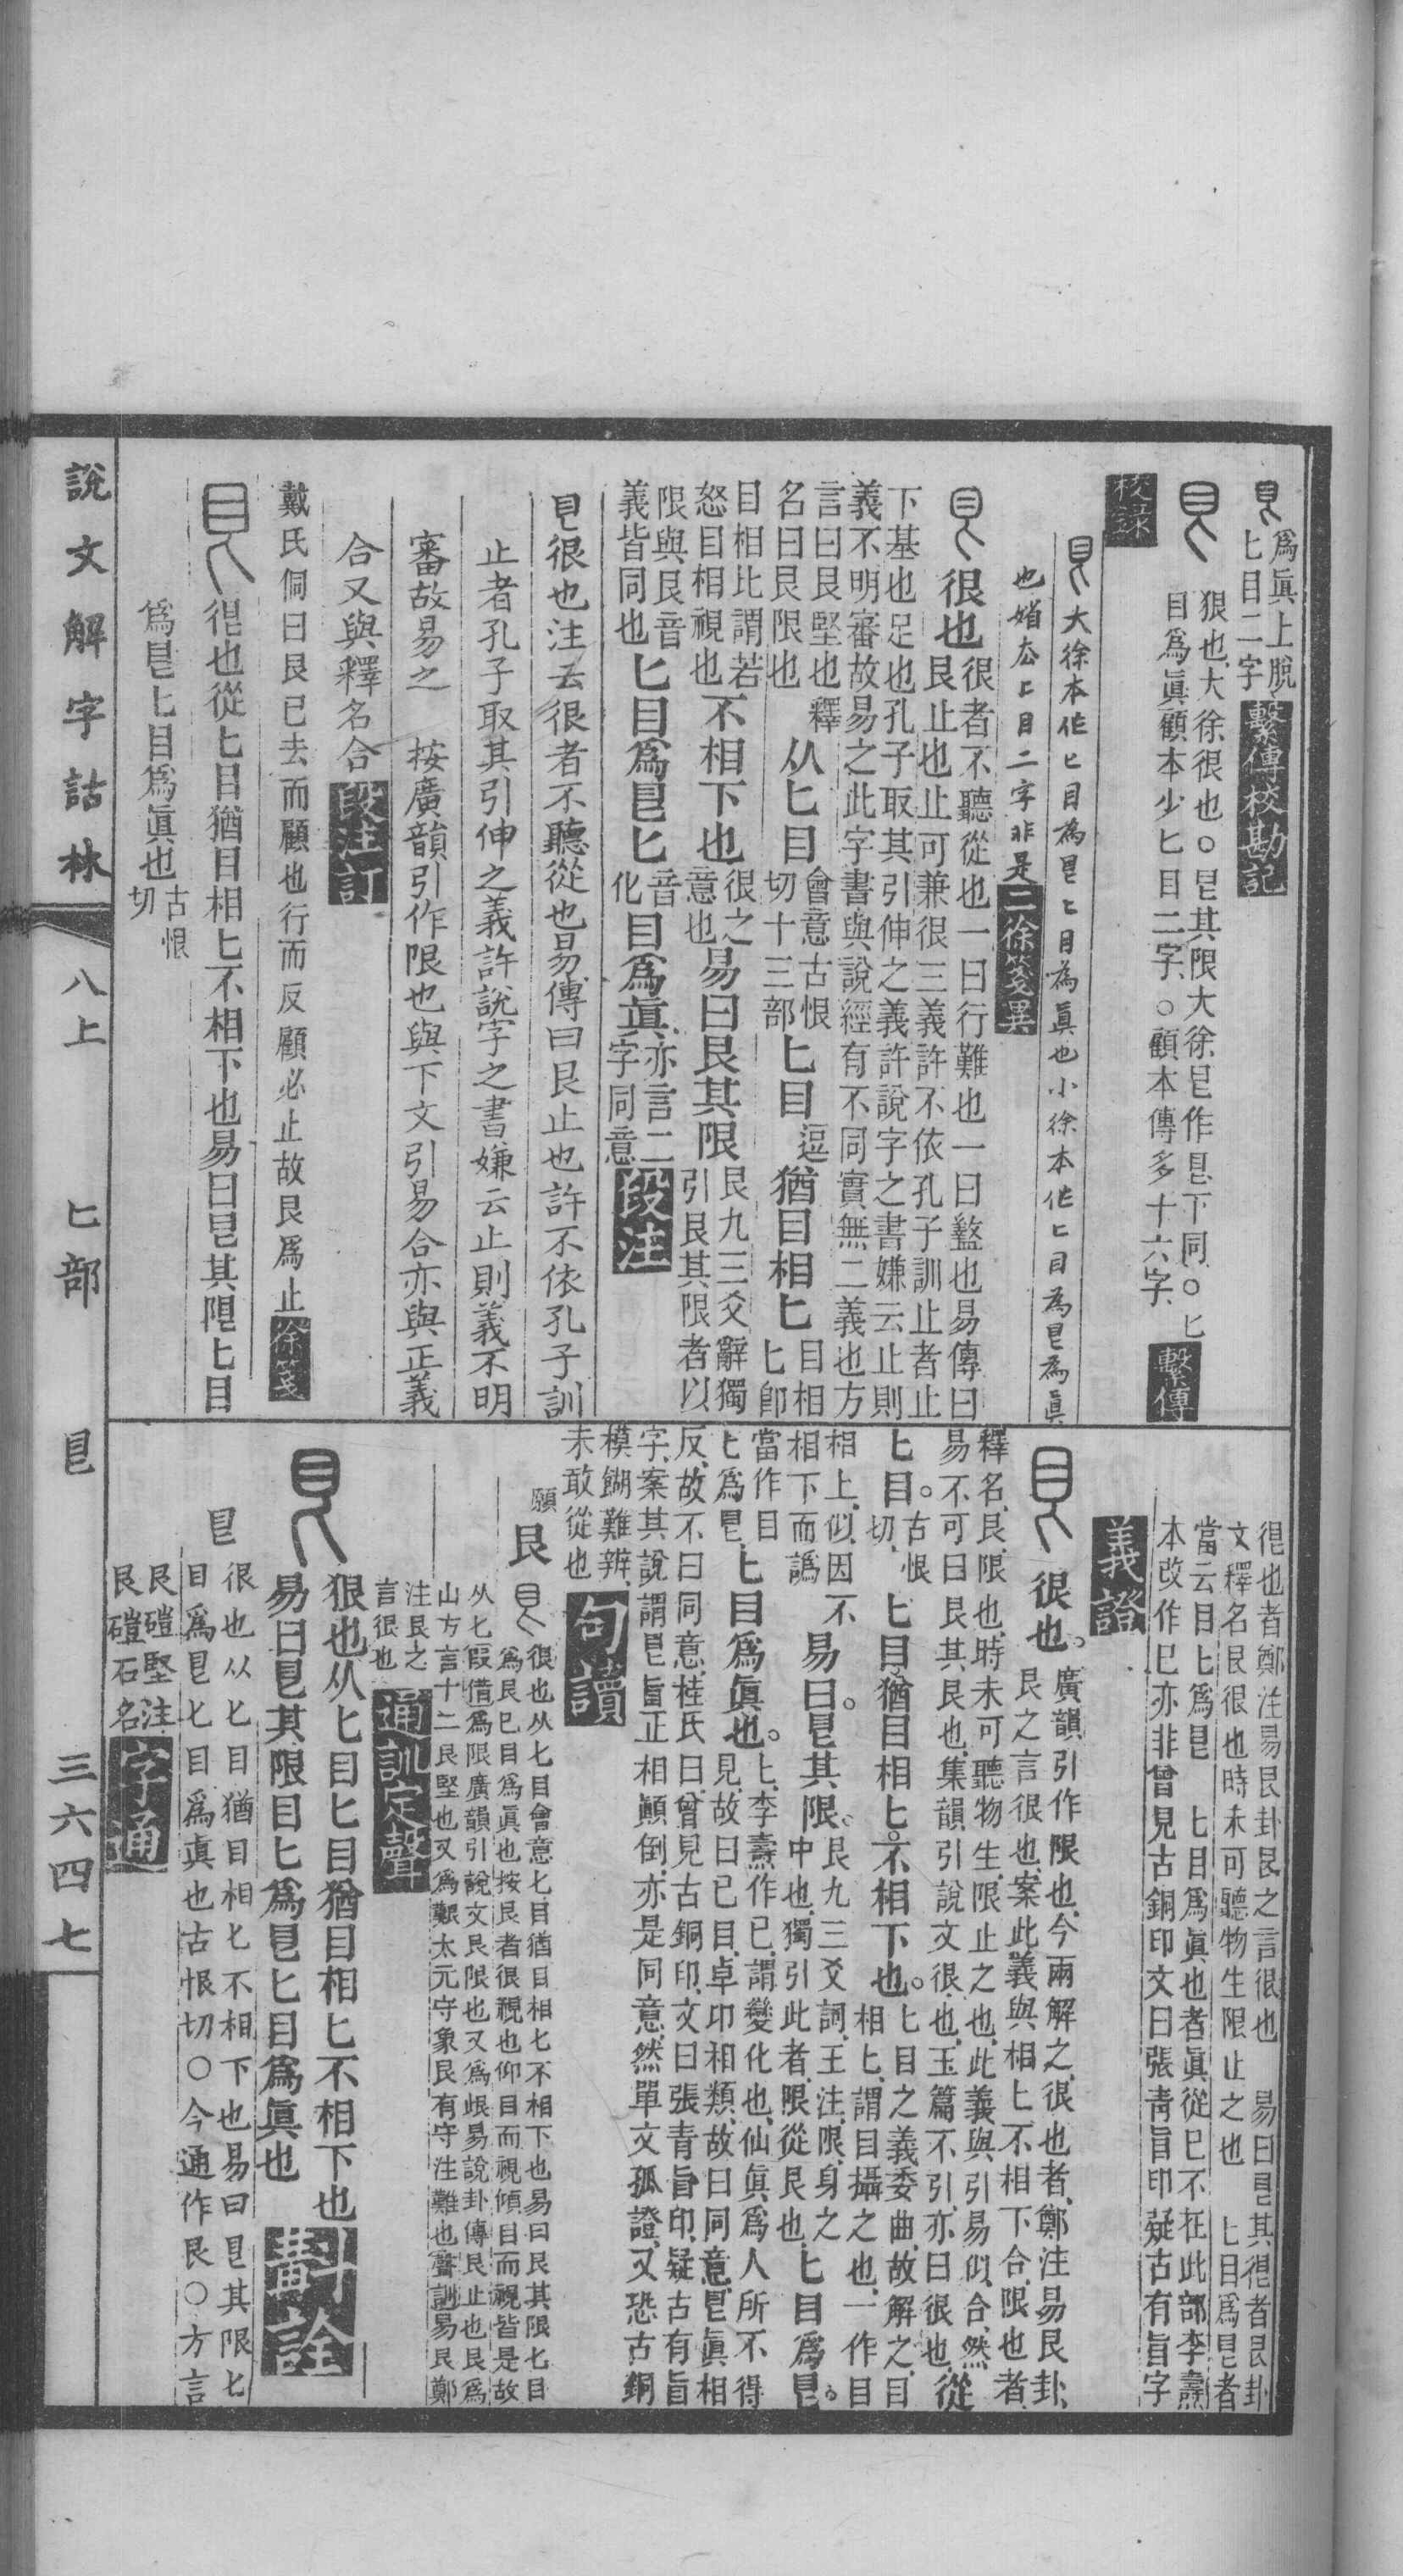 爲眞上脫
匕目二字
繫傳校勘記
狠也大徐很也○㫐其限大徐㫐作㫐下同○匕
目爲眞顧本少匕目二字○顧本傳多十六字
繫傳
校錄
大徐本作匕目為㫐匕目為眞也小徐本作匕目為㫐為眞
也㫐上目二字非是
二徐箋異
很也
很者不聽從也一曰行難也一曰盭也易傳曰
艮止也止可兼很三義許不依孔子訓止者止
下基也足也孔子取其引伸之義許說字之書嫌云止則
義不明審故易之此字書與說經有不同實無二義也方
言曰艮堅也釋
名曰艮限也
从匕目
會意古恨
切十三部
匕目
逗
猶目相匕
目相
匕卽
目相比謂若
怒目相視也
不相下也
很之
意也
易曰艮其限
艮九三爻辭獨
引艮其限者以
限與艮音
義皆同也
匕目爲㫐匕
音
化
目爲眞
亦言二
字同意
段注
㫐很也注云很者不聽從也易傳曰艮止也許不依孔子訓
止者孔子取其引伸之義許說字之書嫌云止則義不明
審故易之　按廣韻引作限也與下文引易合亦與正義
合又與釋名合
段注訂
戴氏侗曰艮已去而顧也行而反顧必止故艮爲止
徐箋
很也從匕目猶目相匕不相下也易曰㫐其限匕目
爲㫐匕目爲眞也
古恨
切
很也者鄭注易艮卦艮之言很也　易曰㫐其很者艮卦
文釋名艮很也時未可聽物生限止之也　匕目爲㫐者
當云目匕爲㫐　匕目爲眞也者眞從匕不在此部李燾
本改作巳亦非曾見古銅印文曰張靑㫖印疑古有㫖字
義證
很也
廣韻引作限也今兩解之很也者鄭注易艮卦
艮之言很也案此義與相匕不相下合限也者
釋名艮限也時未可聽物生限止之也此義與引易似合然
易不可曰艮其艮也集韻引說文很也玉篇不引亦曰很也
從
匕目
古恨
切
匕目猶目相匕不相下也
匕目之義委曲故解之目
相匕謂目攝之也一作目
相上似因不
相下而譌
易曰㫐其限
艮九三爻詞王注限身之
中也獨引此者限從艮也
匕目爲㫐
當作目
匕爲㫐
匕目爲眞也
上李燾作巳謂變化也仙眞爲人所不得
見故曰巳目卓卬相類故曰同意㫐眞相
反故不曰同意桂氏曰曾見古銅印文曰張青㫖印疑古有㫖
字案其說謂㫐㫖正相顚倒亦是同意然單文孤證又恐古銅
模餬難辨
未敢從也
句讀
願
艮
很也从匕目會意匕目猶目相匕不相下也易曰艮其限匕目
爲艮巳目爲眞也按艮者很視也仰目而視傾目而視皆是故
从匕叚借爲限廣韻引說文艮限也又爲垠易說卦傳艮止也艮爲
山方言十二艮堅也又爲艱太元守象艮有守注難也聲訓易艮鄭
注艮之
言很也
通訓定聲
狠也从匕目匕目猶目相匕不相下也
易曰㫐其限目匕爲㫐匕目爲眞也
斠詮
㫐
很也从匕目猶目相匕不相下也易曰㫐其限匕
目爲㫐匕目爲眞也古恨切○今通作艮○方言
艮磑堅注
艮磑石名
字通
說文解字詁林
八上
匕部
㫐
三六四七